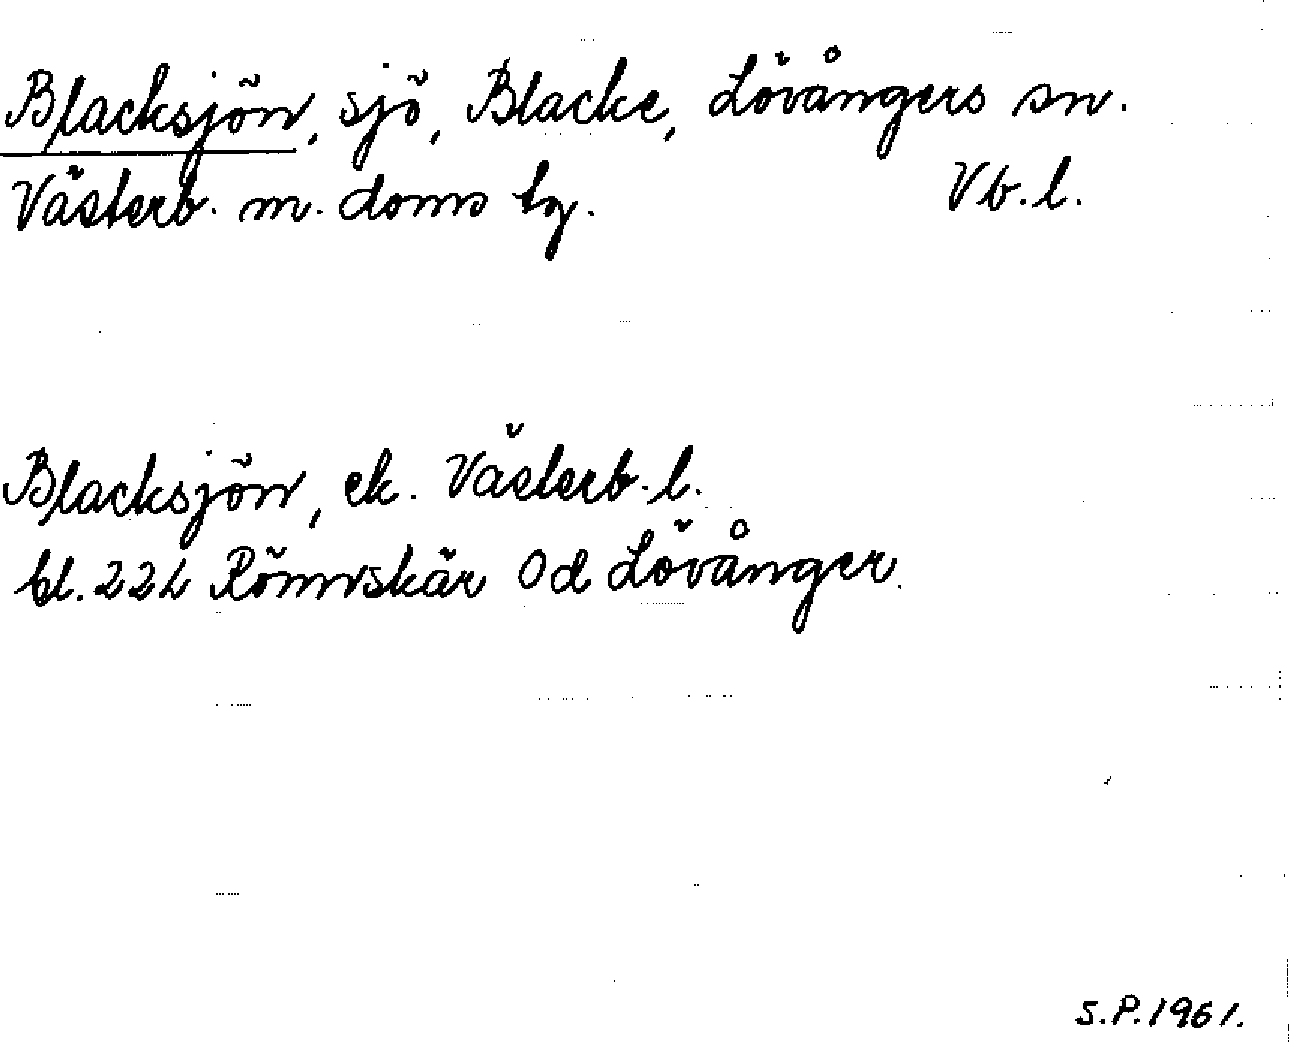 Blacksjön, sjö, Blacke, Lövångers sn.
Västerb. m. doms tg. Vb.l.
Blacksjön, ek. Västerb.l.
bl. 22L Rönnskär Od Lövånger.
S.P.1961.